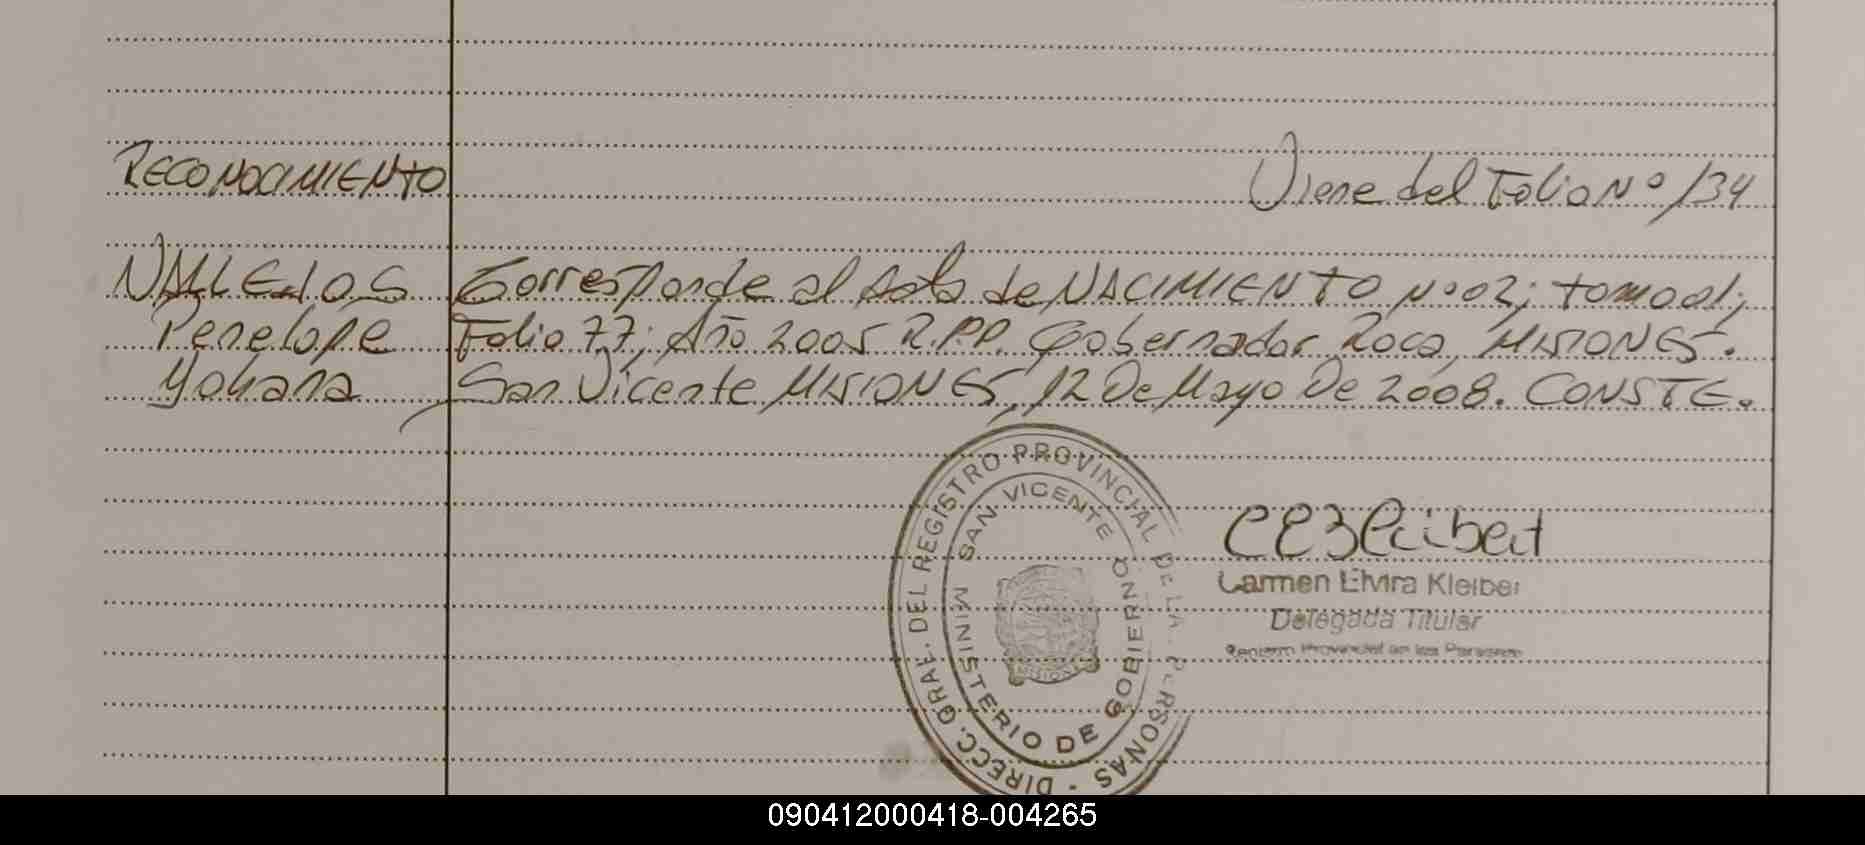 RECONOCIMIENTO
Viene del Folio Nº 134
VALLEJOS
Penelope
Yohana
Corresponde al Acta de NACIMIENTO Nº 02; tomo 01;
Folio 77; Año 2005 R.P.P. Gobernador Roca, MISIONES.
San Vicente MISIONES, 12 De Mayo De 2008. CONSTE.
DIRECC. GRAL. DEL REGISTRO PROVINCIAL DE LAS PERSONAS -
SAN VICENTE
MINISTERIO DE GOBIERNO
MISIONES
Carmen Elvira Kleiber
Delegada Titular
Provincial de las Personas
090412000418-004265